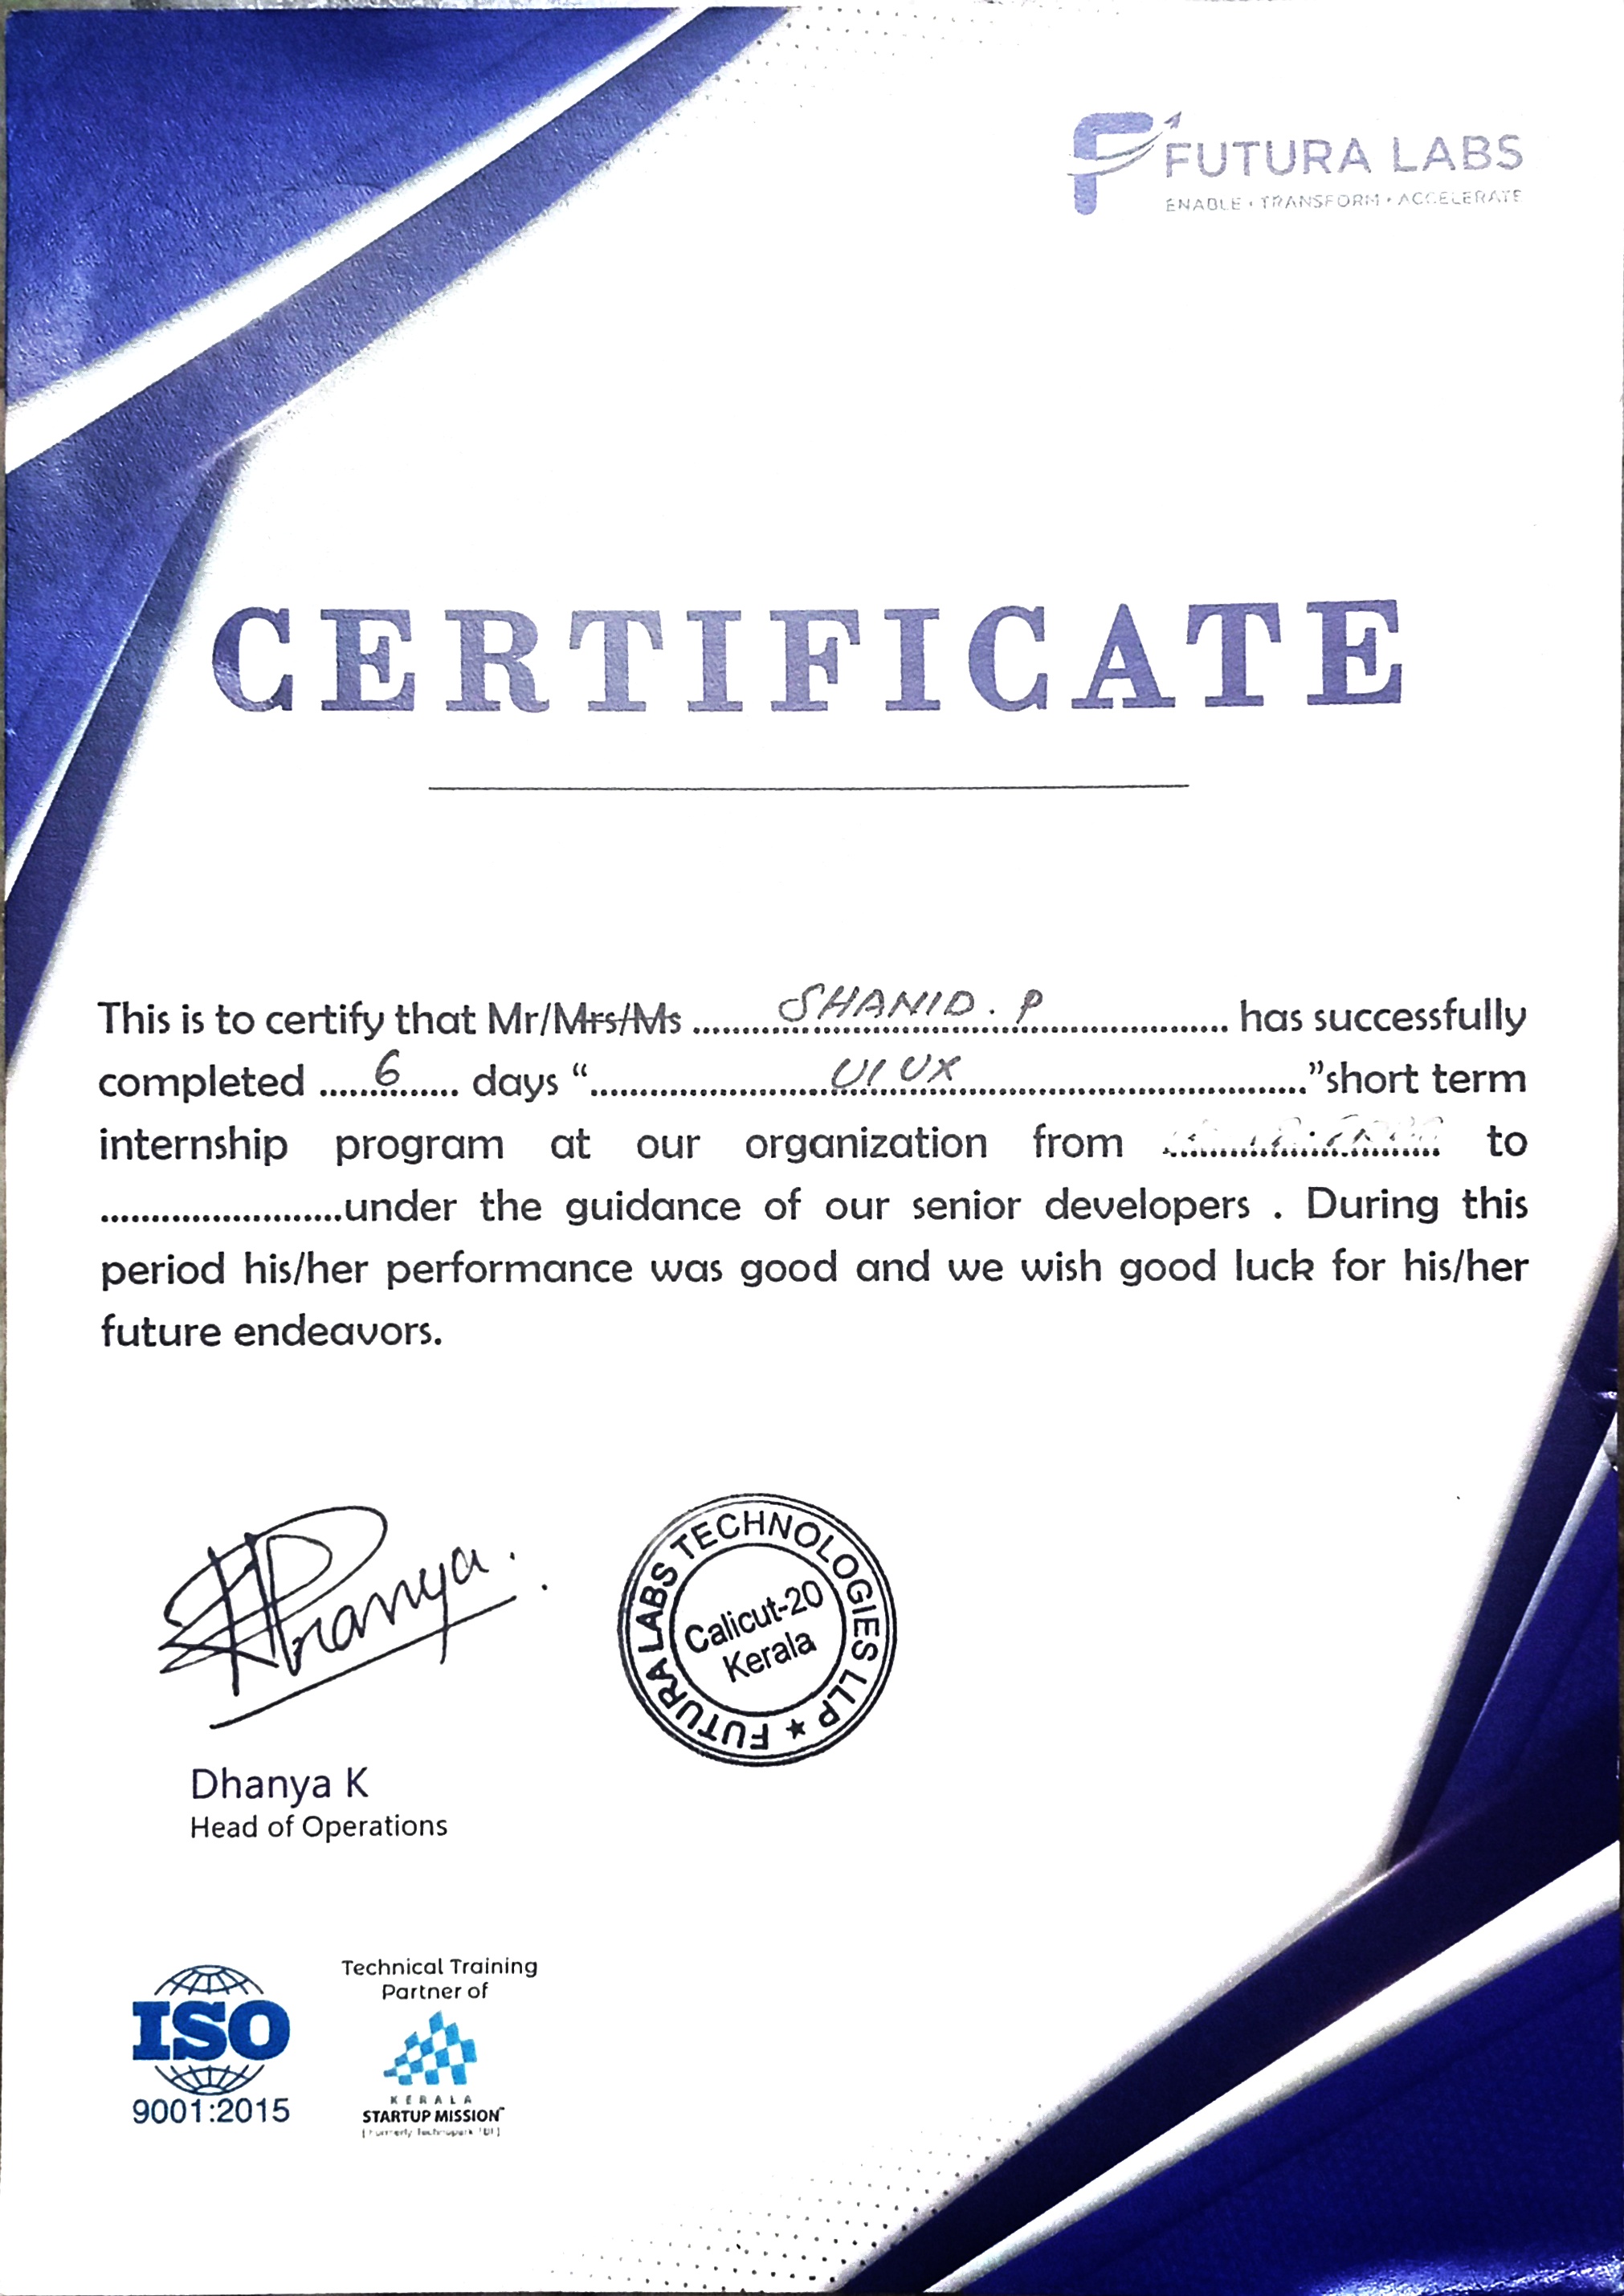 FUTURA LABS
ENABLE • TRANSFORM • ACCELERATE
CERTIFICATE
This is to certify that Mr/Mrs/Ms ..........SHANID. P.......... has successfully
completed .....6...... days “..........UI UX..........”short term
internship program at our organization from to
........................under the guidance of our senior developers . During this
period his/her performance was good and we wish good luck for his/her
future endeavors.
Dhanya.
FUTURA LABS TECHNOLOGIES LLP ★
Calicut-20
Kerala
Dhanya K
Head of Operations
Technical Training
Partner of
ISO
9001:2015
KERALA
STARTUP MISSION™
[Formerly Technopark TBI]